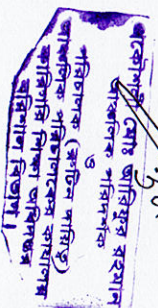 প্রকৌশলী মোঃ আরিফুর রহমান
আঞ্চলিক পরিচালক
ও
পরিচালক (রুটিন দায়িত্ব)
আঞ্চলিক পরিচালকের কার্যালয়
কারিগরি শিক্ষা অধিদপ্তর
বরিশাল বিভাগ।